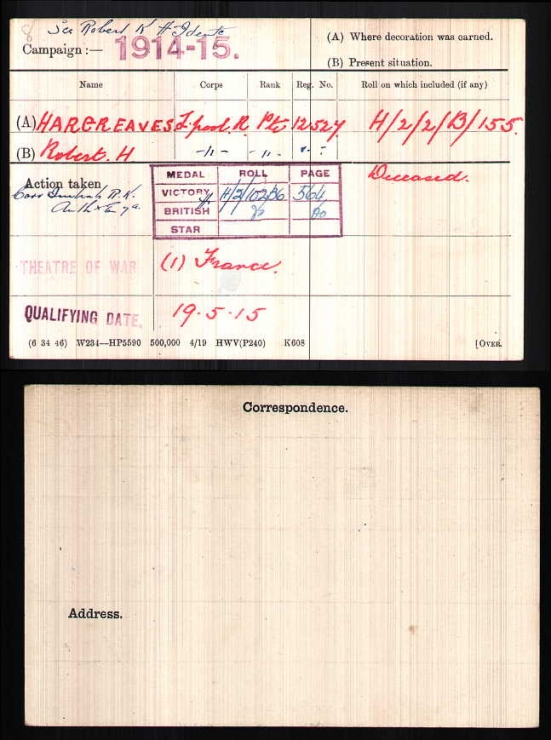 See Robert K
Campaign :— 1914-15.
(A) Where decoration was earned.
(B) Present situation.
Name Corps Rank Reg. No. Roll on which included (if any)
(A) HARGREAVES L'pool. R. Pte 12527 H/2/2/B/155.
(B) Robert. H -"- -"- "
Action taken
Deceased.
MEDAL ROLL PAGE
VICTORY H/2/102B6 564
BRITISH Do Do
STAR
THEATRE OF WAR (1) France.
QUALIFYING DATE. 19.5.15
(6 34 46) W234—HP5590 500,000 4/19 HWV(P240) K608 [OVER.
Correspondence.
Address.